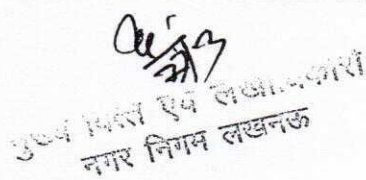 मुख्य वित्त एवं लेखाधिकारी
नगर निगम लखनऊ